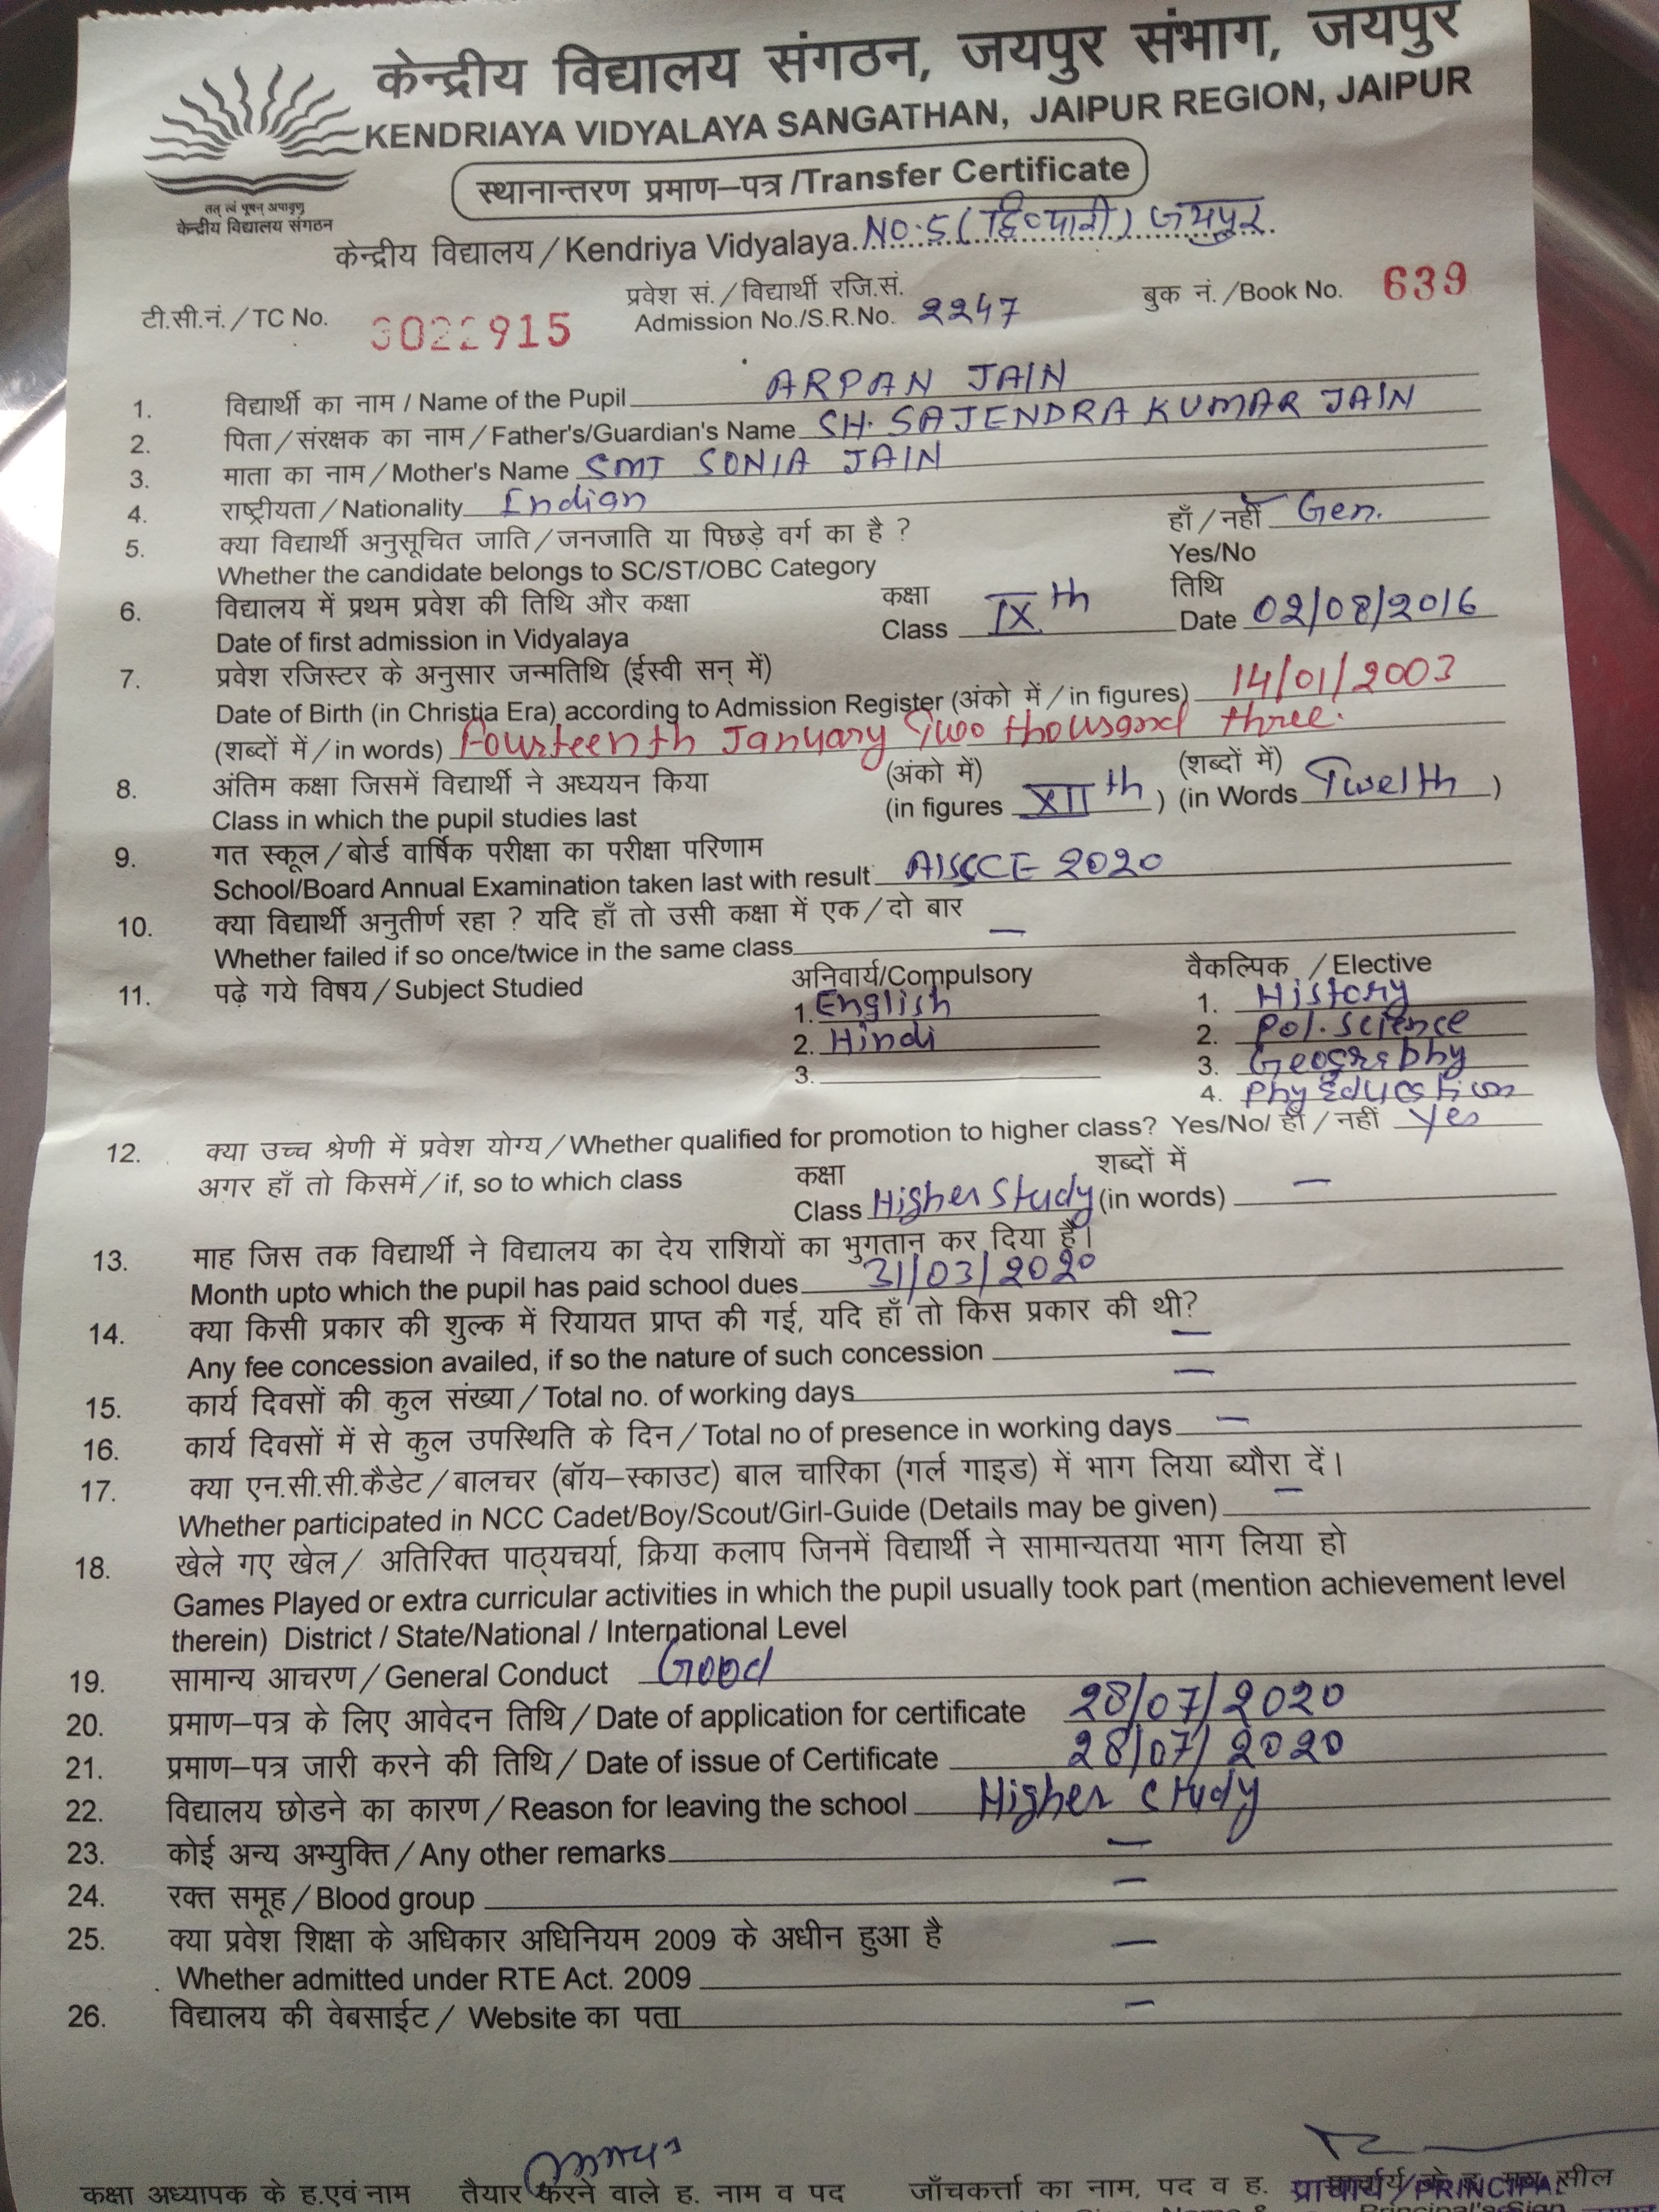 केन्द्रीय विद्यालय संगठन, जयपुर संभाग, जयपुर
KENDRIAYA VIDYALAYA SANGATHAN, JAIPUR REGION, JAIPUR
तत् त्वं पूषन् अपावृणु
केन्द्रीय विद्यालय संगठन
स्थानान्तरण प्रमाण–पत्र /Transfer Certificate
केन्द्रीय विद्यालय / Kendriya Vidyalaya NO. 5 ( द्वि० पारी ) जयपुर
टी.सी.नं. / TC No. 3022915
प्रवेश सं. / विद्यार्थी रजि.सं.
Admission No./S.R.No. 2247
बुक नं. /Book No. 639
1. विद्यार्थी का नाम / Name of the Pupil ARPAN JAIN
2. पिता / संरक्षक का नाम / Father's/Guardian's Name SH. SAJENDRA KUMAR JAIN
3. माता का नाम / Mother's Name SMT SONIA JAIN
4. राष्ट्रीयता / Nationality Indian
5. क्या विद्यार्थी अनुसूचित जाति / जनजाति या पिछड़े वर्ग का है ? हाँ / नहीं Gen.
Whether the candidate belongs to SC/ST/OBC Category Yes/No
6. विद्यालय में प्रथम प्रवेश की तिथि और कक्षा कक्षा तिथि
Date of first admission in Vidyalaya Class IXth Date 02/08/2016
7. प्रवेश रजिस्टर के अनुसार जन्मतिथि (ईस्वी सन् में)
Date of Birth (in Christia Era) according to Admission Register (अंको में / in figures) 14/01/2003
(शब्दों में / in words) Fourteenth January Two thousand three.
8. अंतिम कक्षा जिसमें विद्यार्थी ने अध्ययन किया (अंको में) (शब्दों में)
Class in which the pupil studies last (in figures XIIth ) (in Words Twelth )
9. गत स्कूल / बोर्ड वार्षिक परीक्षा का परीक्षा परिणाम
School/Board Annual Examination taken last with result AISSCE 2020
10. क्या विद्यार्थी अनुतीर्ण रहा ? यदि हाँ तो उसी कक्षा में एक / दो बार
Whether failed if so once/twice in the same class —
11. पढ़े गये विषय / Subject Studied अनिवार्य/Compulsory वैकल्पिक / Elective
1. English 1. History
2. Hindi 2. Pol. Science
3. 3. Geography
4. Phy Education
12. क्या उच्च श्रेणी में प्रवेश योग्य / Whether qualified for promotion to higher class? Yes/No/ हाँ / नहीं Yes
अगर हाँ तो किसमें / if, so to which class कक्षा शब्दों में
Class Higher Study (in words) —
13. माह जिस तक विद्यार्थी ने विद्यालय का देय राशियों का भुगतान कर दिया है।
Month upto which the pupil has paid school dues 31/03/2020
14. क्या किसी प्रकार की शुल्क में रियायत प्राप्त की गई, यदि हाँ तो किस प्रकार की थी?
Any fee concession availed, if so the nature of such concession —
15. कार्य दिवसों की कुल संख्या / Total no. of working days —
16. कार्य दिवसों में से कुल उपस्थिति के दिन / Total no of presence in working days —
17. क्या एन.सी.सी.कैडेट / बालचर (बॉय–स्काउट) बाल चारिका (गर्ल गाइड) में भाग लिया ब्यौरा दें।
Whether participated in NCC Cadet/Boy/Scout/Girl-Guide (Details may be given) —
18. खेले गए खेल / अतिरिक्त पाठ्यचर्या, क्रिया कलाप जिनमें विद्यार्थी ने सामान्यतया भाग लिया हो
Games Played or extra curricular activities in which the pupil usually took part (mention achievement level
therein) District / State/National / International Level
19. सामान्य आचरण / General Conduct Good
20. प्रमाण–पत्र के लिए आवेदन तिथि / Date of application for certificate 28/07/2020
21. प्रमाण–पत्र जारी करने की तिथि / Date of issue of Certificate 28/07/2020
22. विद्यालय छोडने का कारण / Reason for leaving the school Higher study
23. कोई अन्य अभ्युक्ति / Any other remarks —
24. रक्त समूह / Blood group —
25. क्या प्रवेश शिक्षा के अधिकार अधिनियम 2009 के अधीन हुआ है —
Whether admitted under RTE Act. 2009
26. विद्यालय की वेबसाईट / Website का पता —
कक्षा अध्यापक के ह.एवं नाम तैयार करने वाले ह. नाम व पद जाँचकर्त्ता का नाम, पद व ह. प्राचार्य/PRINCIPAL सील